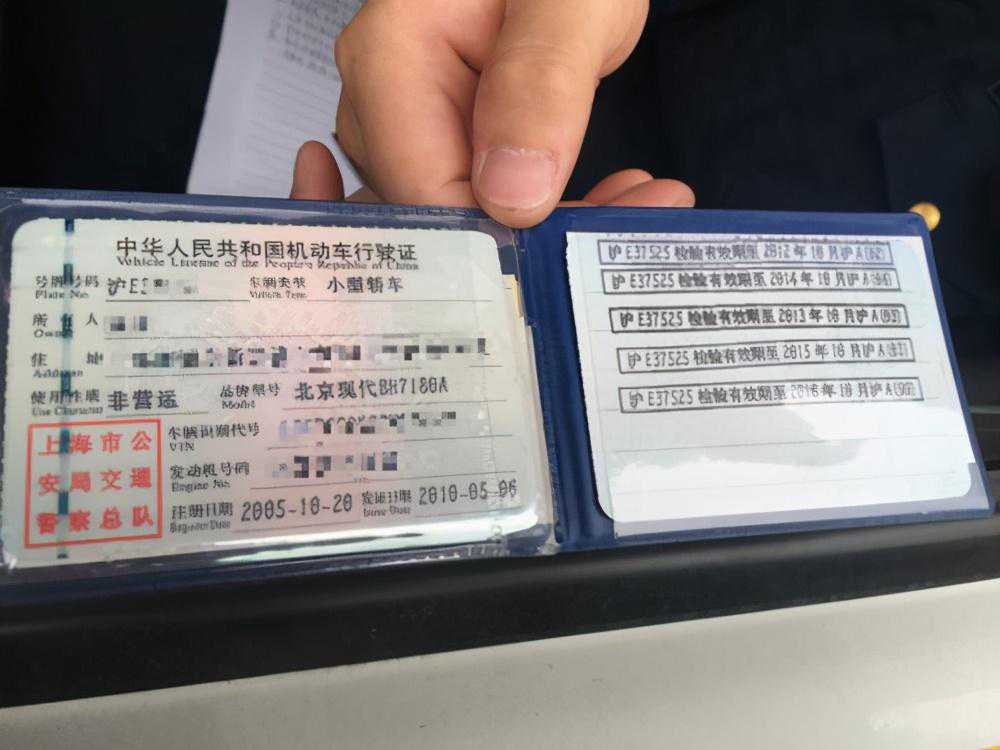 中华人民共和国机动车行驶证
Vehicle License of the People's Republic of China
号牌号码 沪E 车辆类型 小型轿车
Plate No. Vehicle Type
所有人
Owner
住址
Address
使用性质 非营运 品牌型号 北京现代BH7180A
Use Character Model
上海市公安局交通警察总队
车辆识别代号
VIN
发动机号码
Engine No.
注册日期 2005-10-20 发证日期 2010-05-06
Register Date Issue Date
沪E37525 检验有效期至 2012年10月沪A
沪E37525 检验有效期至 2014年10月沪A
沪E37525 检验有效期至 2013年10月沪A
沪E37525 检验有效期至 2015年10月沪A
沪E37525 检验有效期至 2016年10月沪A